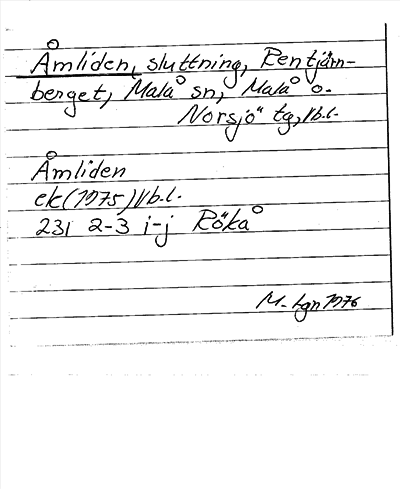 Åmliden, sluttning, Rentjärn-
berget, Malå sn, Malå o.
Norsjö tg, Vb.l.
Åmliden
ek (1975) Vb.l.
23I 2-3 i-j Röka°
M-tgn 1976